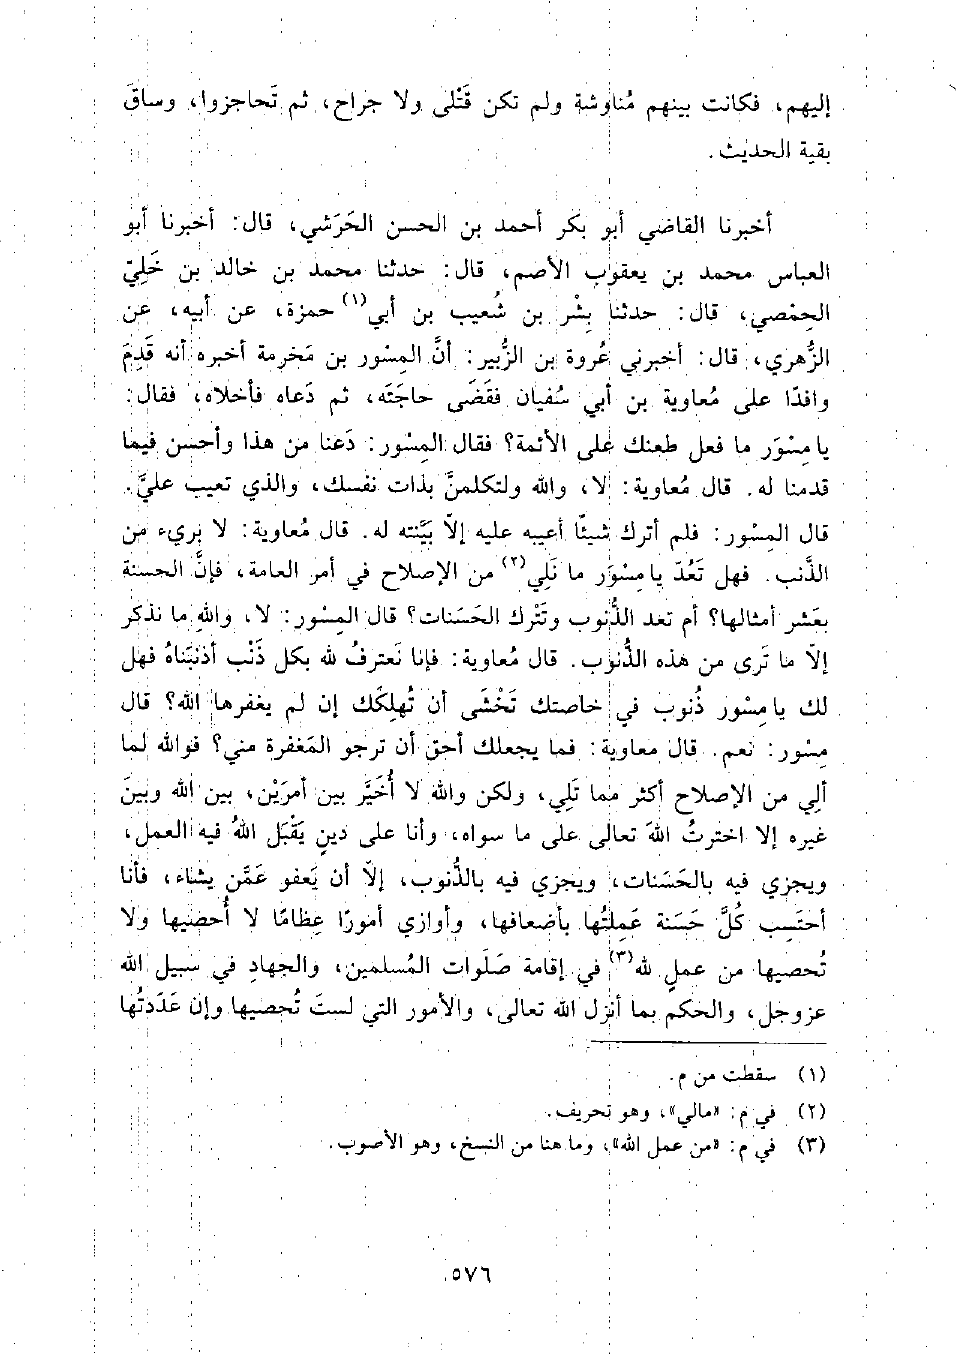 إليهم، فكانت بينهم مُناوشة ولم تكن قَتْلى ولا جراح، ثم تَحاجزوا، وساقَ
بقية الحديث.
أخبرنا القاضي أبو بكر أحمد بن الحسن الحَرَشي، قال: أخبرنا أبو
العباس محمد بن يعقوب الأصم، قال: حدثنا محمد بن خالد بن خَلِيّ
الحِمْصي، قال: حدثنا بِشْر بن شُعيب بن أبي(١) حمزة، عن أبيه، عن
الزُّهري، قال: أخبرني عُروة بن الزُّبير: أنَّ المِسْور بن مَخرمة أخبره أنه قَدِمَ
وافدًا على مُعاوية بن أبي سُفيان فقَضَى حاجَتَه، ثم دَعاه فأخلاه، فقال:
يا مِسْوَر ما فعل طعنك على الأئمة؟ فقال المِسْور: دَعنا من هذا وأحسن فيما
قدمنا له. قال مُعاوية: لا، والله ولتكلمنَّ بذات نفسك، والذي تعيب عليَّ.
قال المِسْور: فلم أترك شيئًا أعيبه عليه إلاّ بَيَّنته له. قال مُعاوية: لا بريء من
الذَّنب. فهل تَعُدّ يا مِسْوَر ما نَلِي(٢) من الإصلاح في أمر العامة، فإنَّ الحسنة
بعَشر أمثالها؟ أم تعد الذُّنوب وتَتْرك الحَسَنات؟ قال المِسْور: لا، واللهِ ما نذكر
إلاّ ما تَرى من هذه الذُّنوب. قال مُعاوية: فإنا نَعترفُ لله بكل ذَنْب أذنبَناهُ فهل
لك يا مِسْور ذُنوب في خاصتك تَخْشَى أن تُهلِكَك إن لم يغفرها الله؟ قال
مِسْور: نعم. قال معاوية: فما يجعلك أحق أن ترجو المَغفرة مني؟ فوالله لما
ألِي من الإصلاح أكثر مما تَلِي، ولكن والله لا أُخَيَّر بين أمرَيْن، بين الله وبينَ
غيره إلا اخترتُ اللهَ تعالى على ما سواه، وأنا على دينٍ يَقْبَل اللهُ فيه العمل،
ويجزي فيه بالحَسَنات، ويجزي فيه بالذُّنوب، إلاّ أن يَعفو عَمَّن يشاء، فأنا
أحتَسِب كُلَّ حَسَنة عَمِلتُها بأضعافها، وأوازي أمورًا عِظامًا لا أُحصْيها ولا
تُحصيها من عملٍ لله(٣) في إقامة صَلَوات المُسلمين، والجهادِ في سبيل الله
عزوجل، والحكم بما أنزل الله تعالى، والأمور التي لستَ تُحصيها وإن عَدَدتُها
(١) سقطت من م.
(٢) في م: «مالي»، وهو تحريف.
(٣) في م: «من عمل الله»، وما هنا من النسخ، وهو الأصوب.
٥٧٦